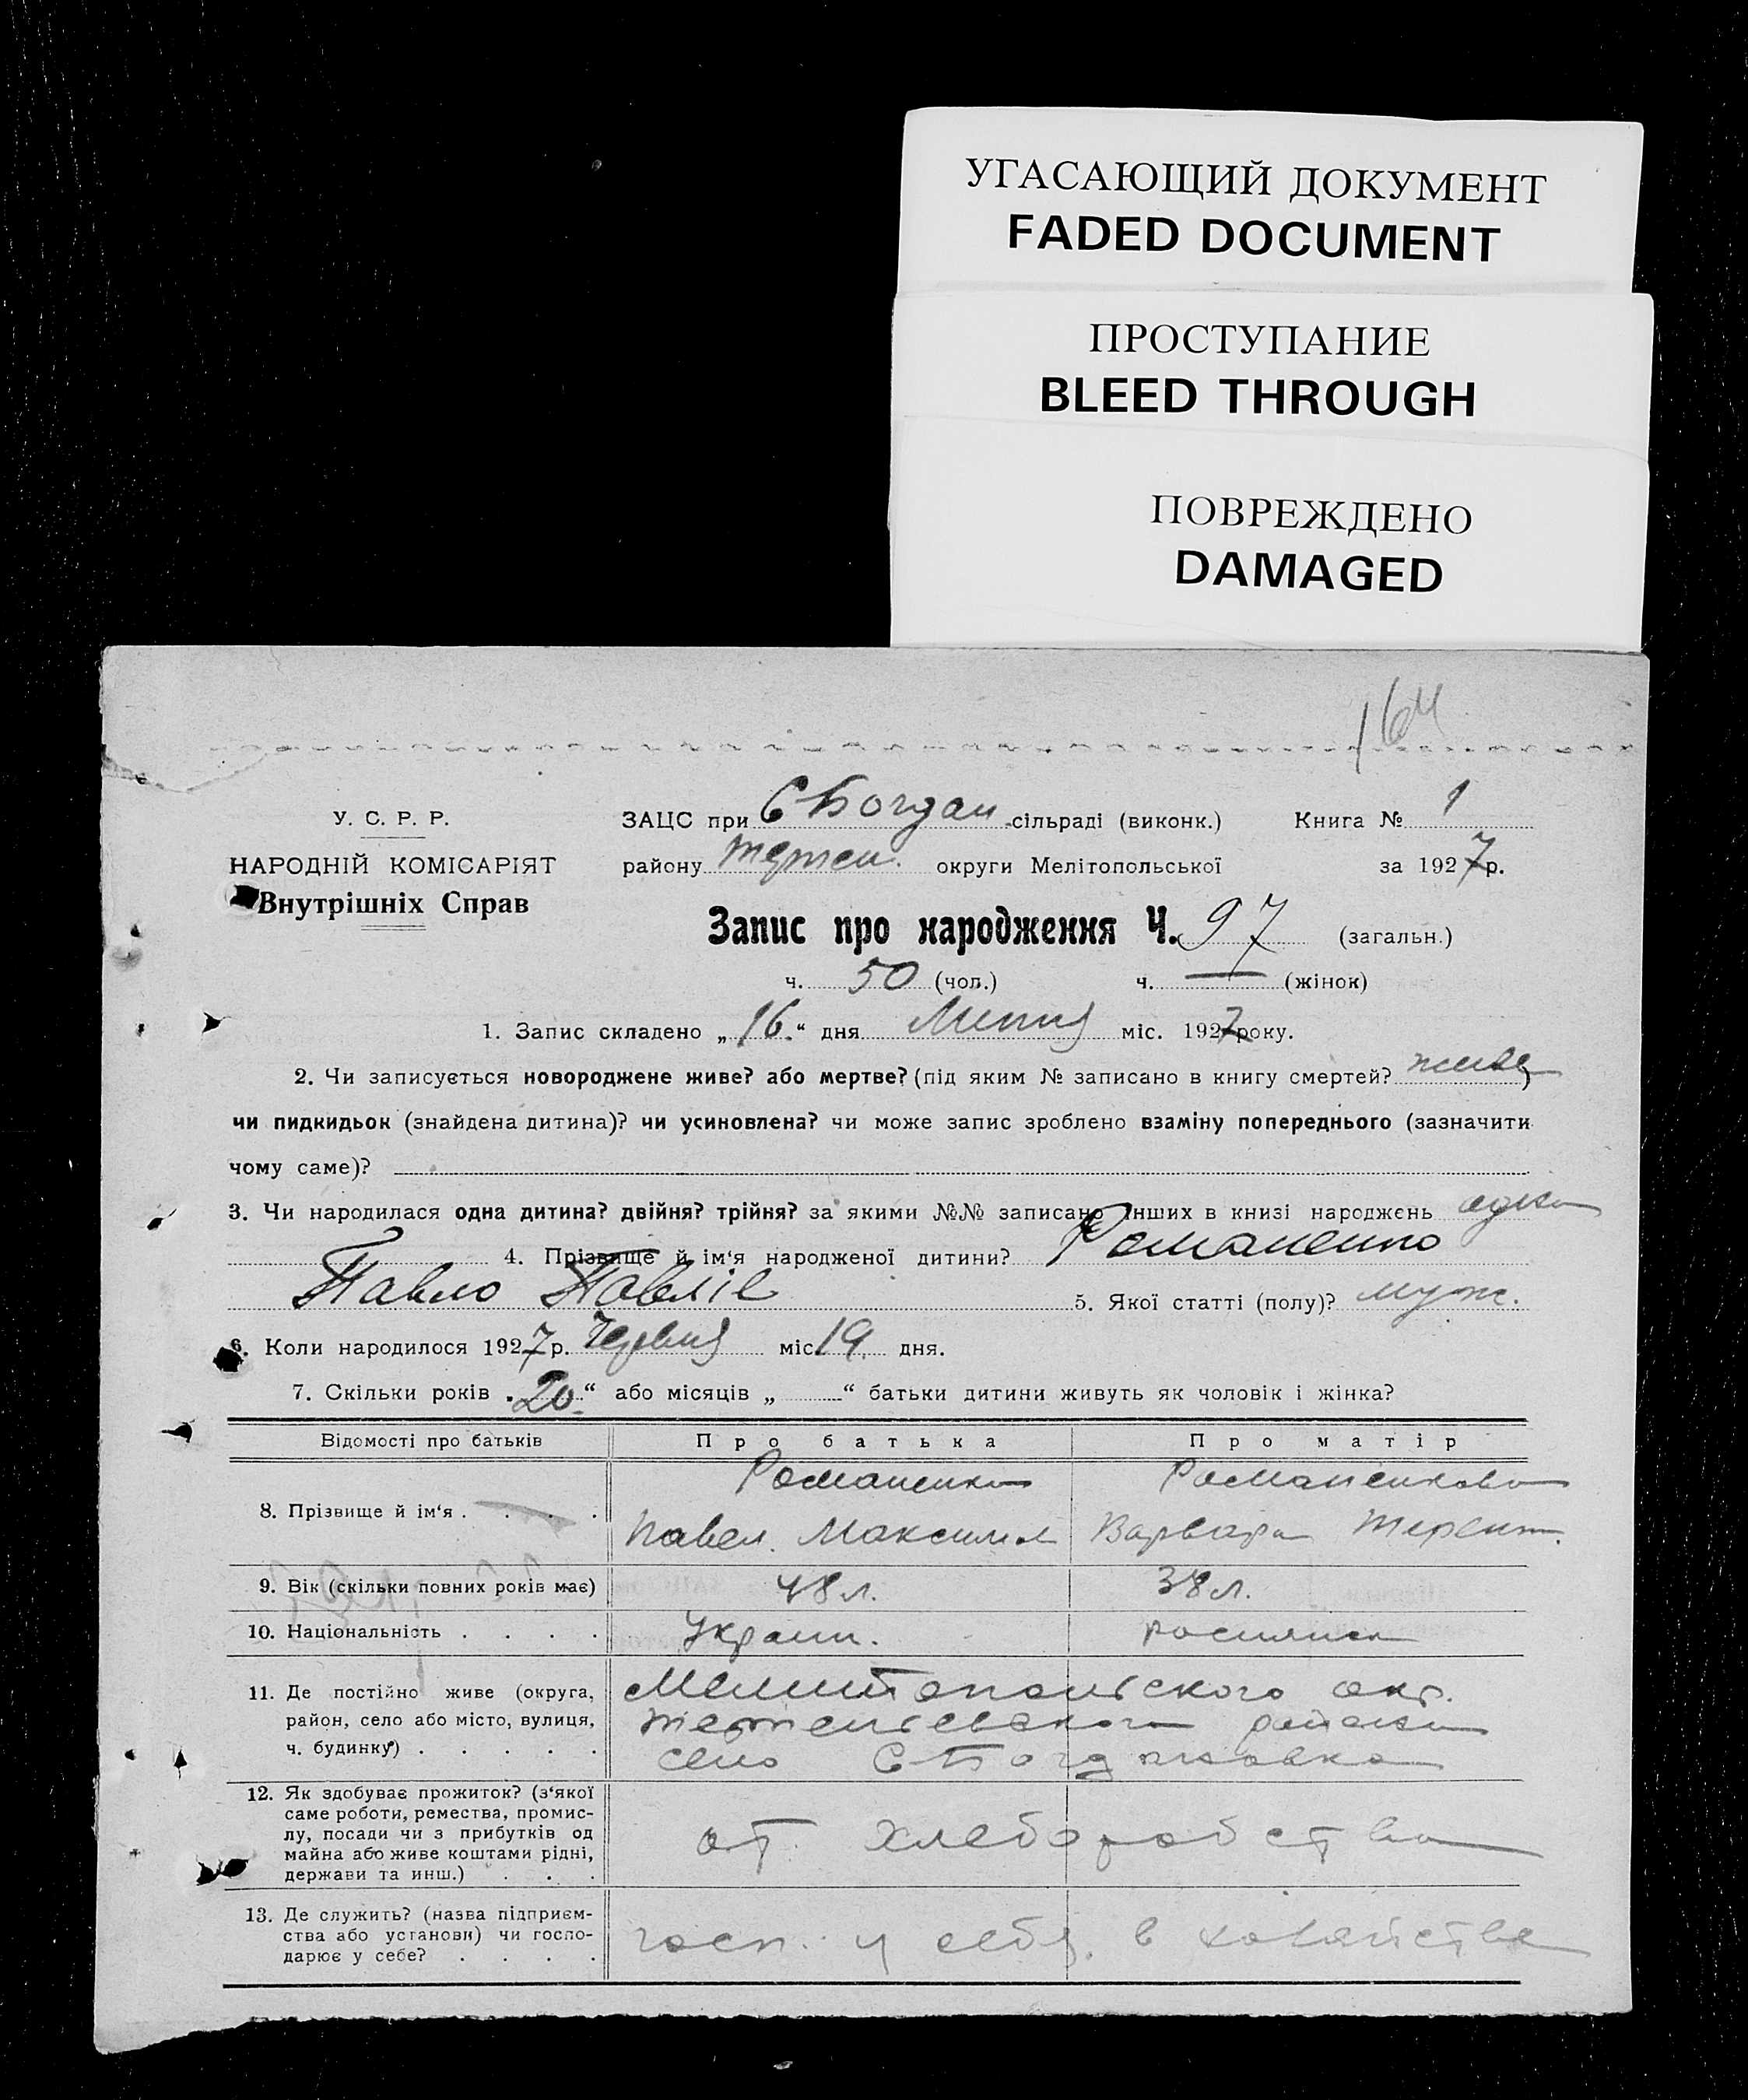 УГАСАЮЩИЙ ДОКУМЕНТ
FADED DOCUMENT
ПРОСТУПАНИЕ
BLEED THROUGH
ПОВРЕЖДЕНО
DAMAGED
164
У. С. Р. Р.
НАРОДНІЙ КОМІСАРІЯТ
Внутрішніх Справ
ЗАЦС при С Богдан сільраді (виконк.) Книга № 1
району округи Мелітопольської за 1927 р.
Запис про народження Ч. 97 (загальн.)
ч. 50 (чол.) ч. — (жінок)
1. Запис складено „16“ дня Липня міс. 1927 року.
2. Чи записується новороджене живе? або мертве? (під яким № записано в книгу смертей? живе
чи пидкидьок (знайдена дитина)? чи усиновлена? чи може запис зроблено взаміну попереднього (зазначити
чому саме)?
3. Чи народилася одна дитина? двійня? трійня? за якими №№ записано інших в книзі народжень одна
4. Прізвище й ім‘я народженої дитини? Романенко
Павло Павлів 5. Якої статті (полу)? муж.
6. Коли народилося 1927 р. Червня міс 19 дня.
7. Скільки років „20“ або місяців „ “ батьки дитини живуть як чоловік і жінка?
Відомості про батьків Про батька Про матір
8. Прізвище й ім‘я . . . . Романенко Романенкова
Павел. Максимов Варвара Терент.
9. Вік (скільки повних років має) 48 л. 38 л.
10. Національність . . . . Украин. росиянка
11. Де постійно живе (округа,
район, село або місто, вулиця,
ч. будинку) . . . . .
Мелитопольского окр.
района
село С Богдановка
12. Як здобуває прожиток? (з‘якої
саме роботи, ремества, промис-
лу, посади чи з прибутків од
майна або живе коштами рідні,
держави та инш.) . . .
от хлеборобства
13. Де служить? (назва підприєм-
ства або установи) чи госпо-
дарює у себе? . . . .
госп. у себя в хозяйстве